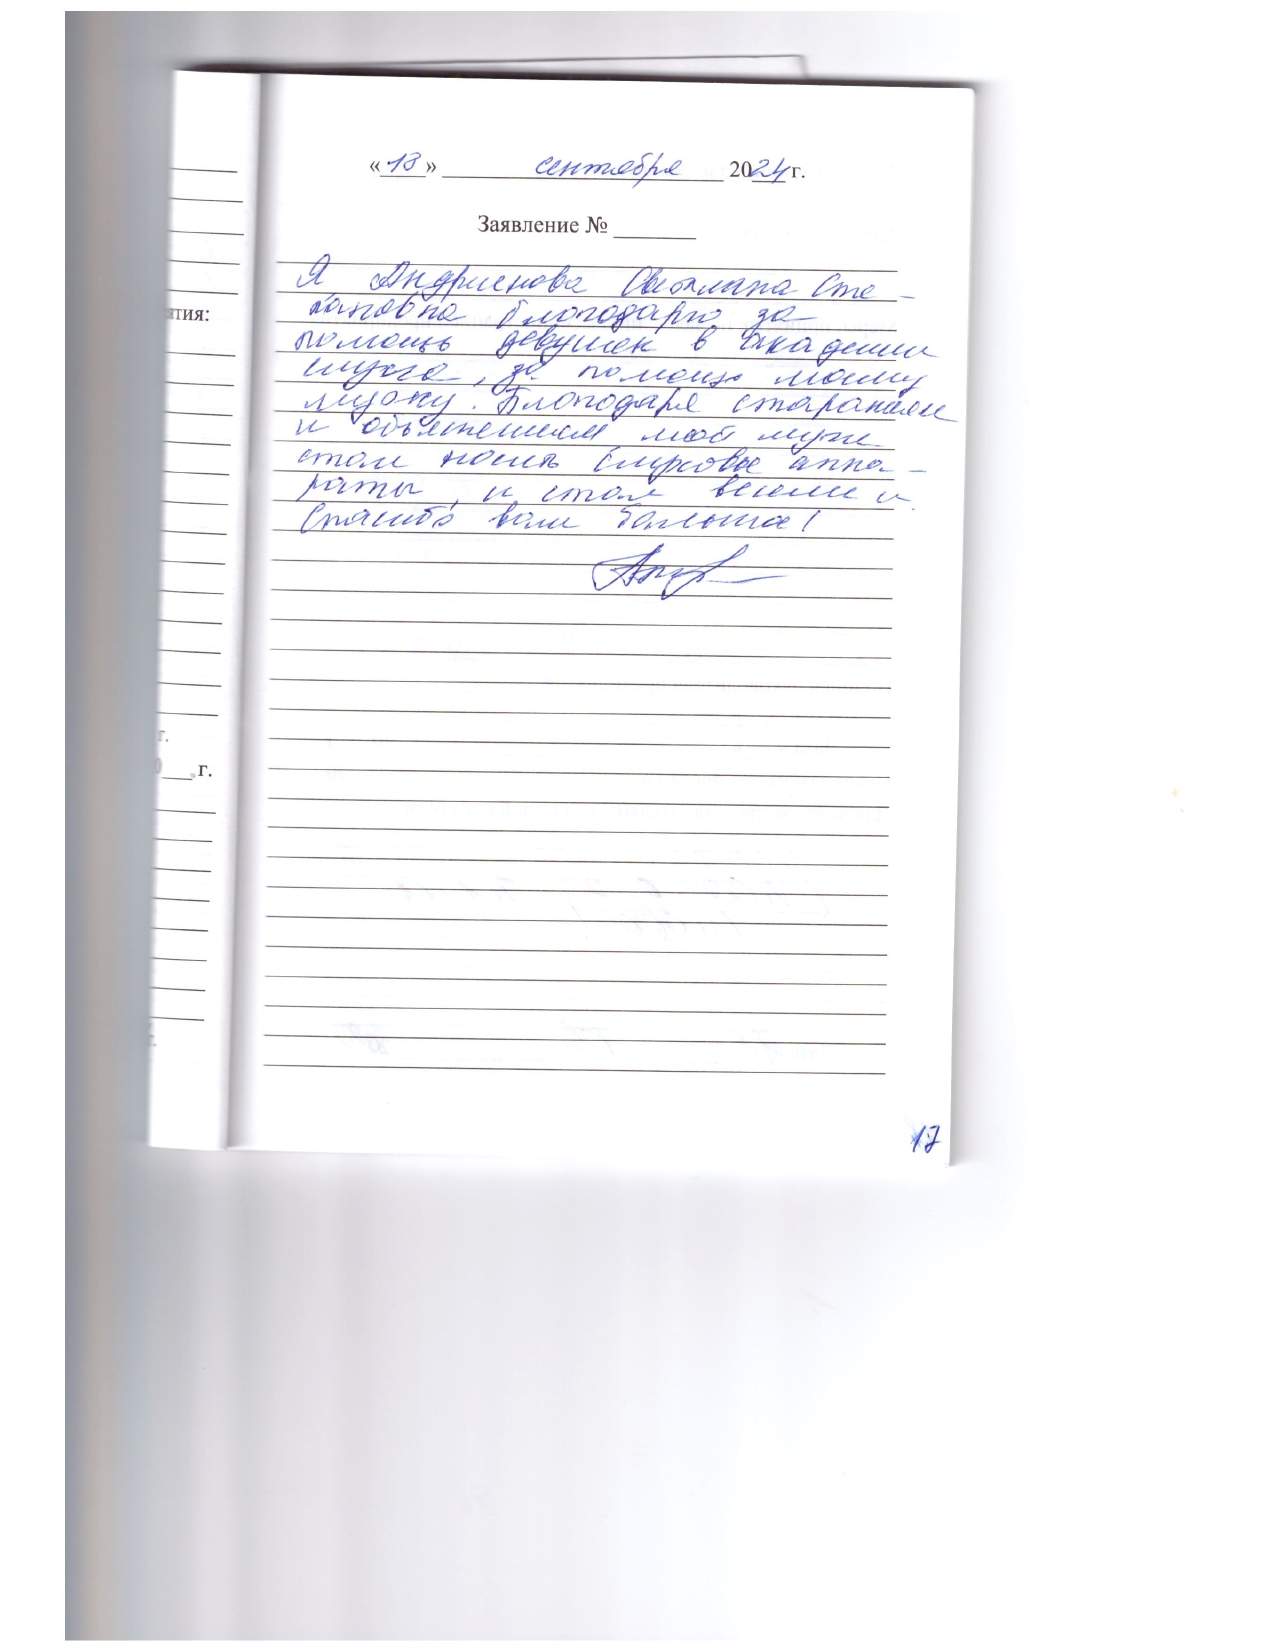 «13» сентября 2024 г.
Заявление №
Я Андриенова Светлана Сте-
пановна благодарю за
помощь девушек в академии
слуха, за помощь моему
мужу. Благодаря стараниям
и объяснениям мой муж
стал носить слуховые аппа-
раты, и стал
Спасибо вам большое!
ятия:
г.
г.
17